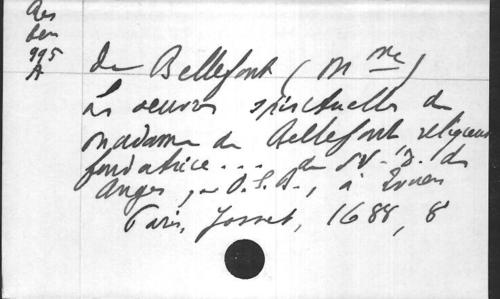 Res
995
A
de Bellefont (Mme)
Les oeuvres spirituelles de
madame de Bellefont religieuse
fondatrice... de N.-D. des
Anges, O.S.B., à Rouen
Paris, Josset, 1688, 8°